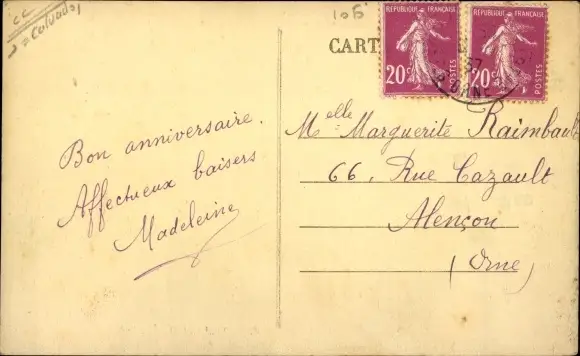 cc
Calvados
106
CART
RÉPUBLIQUE FRANÇAISE
20c
POSTES
RÉPUBLIQUE FRANÇAISE
20c
POSTES
37
ORNE
Bon anniversaire.
Affectueux baisers
Madeleine
Melle Marguerite Raimbault
66, Rue Cazault
Alençon
(Orne)